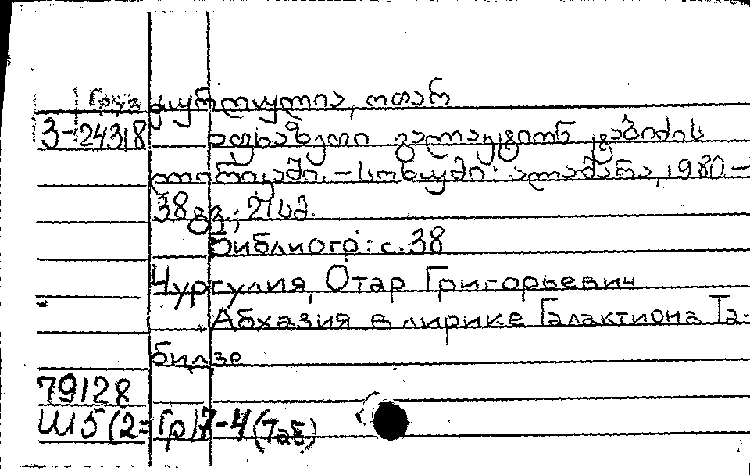 Груз ჭურღულია, ოთარ
3-24318 აფხაზეთი გალაკტიონ ტაბიძის
ლირიკაში. – სოხუმი: ალაშარა, 1980 –
38 გვ.; 21 სმ.
Библиогр: с. 38
Чургулия, Отар Григорьевич
Абхазия в лирике Галактиона Та-
бидзе
79128
Ш5(2=Гр)7-4(Таб)